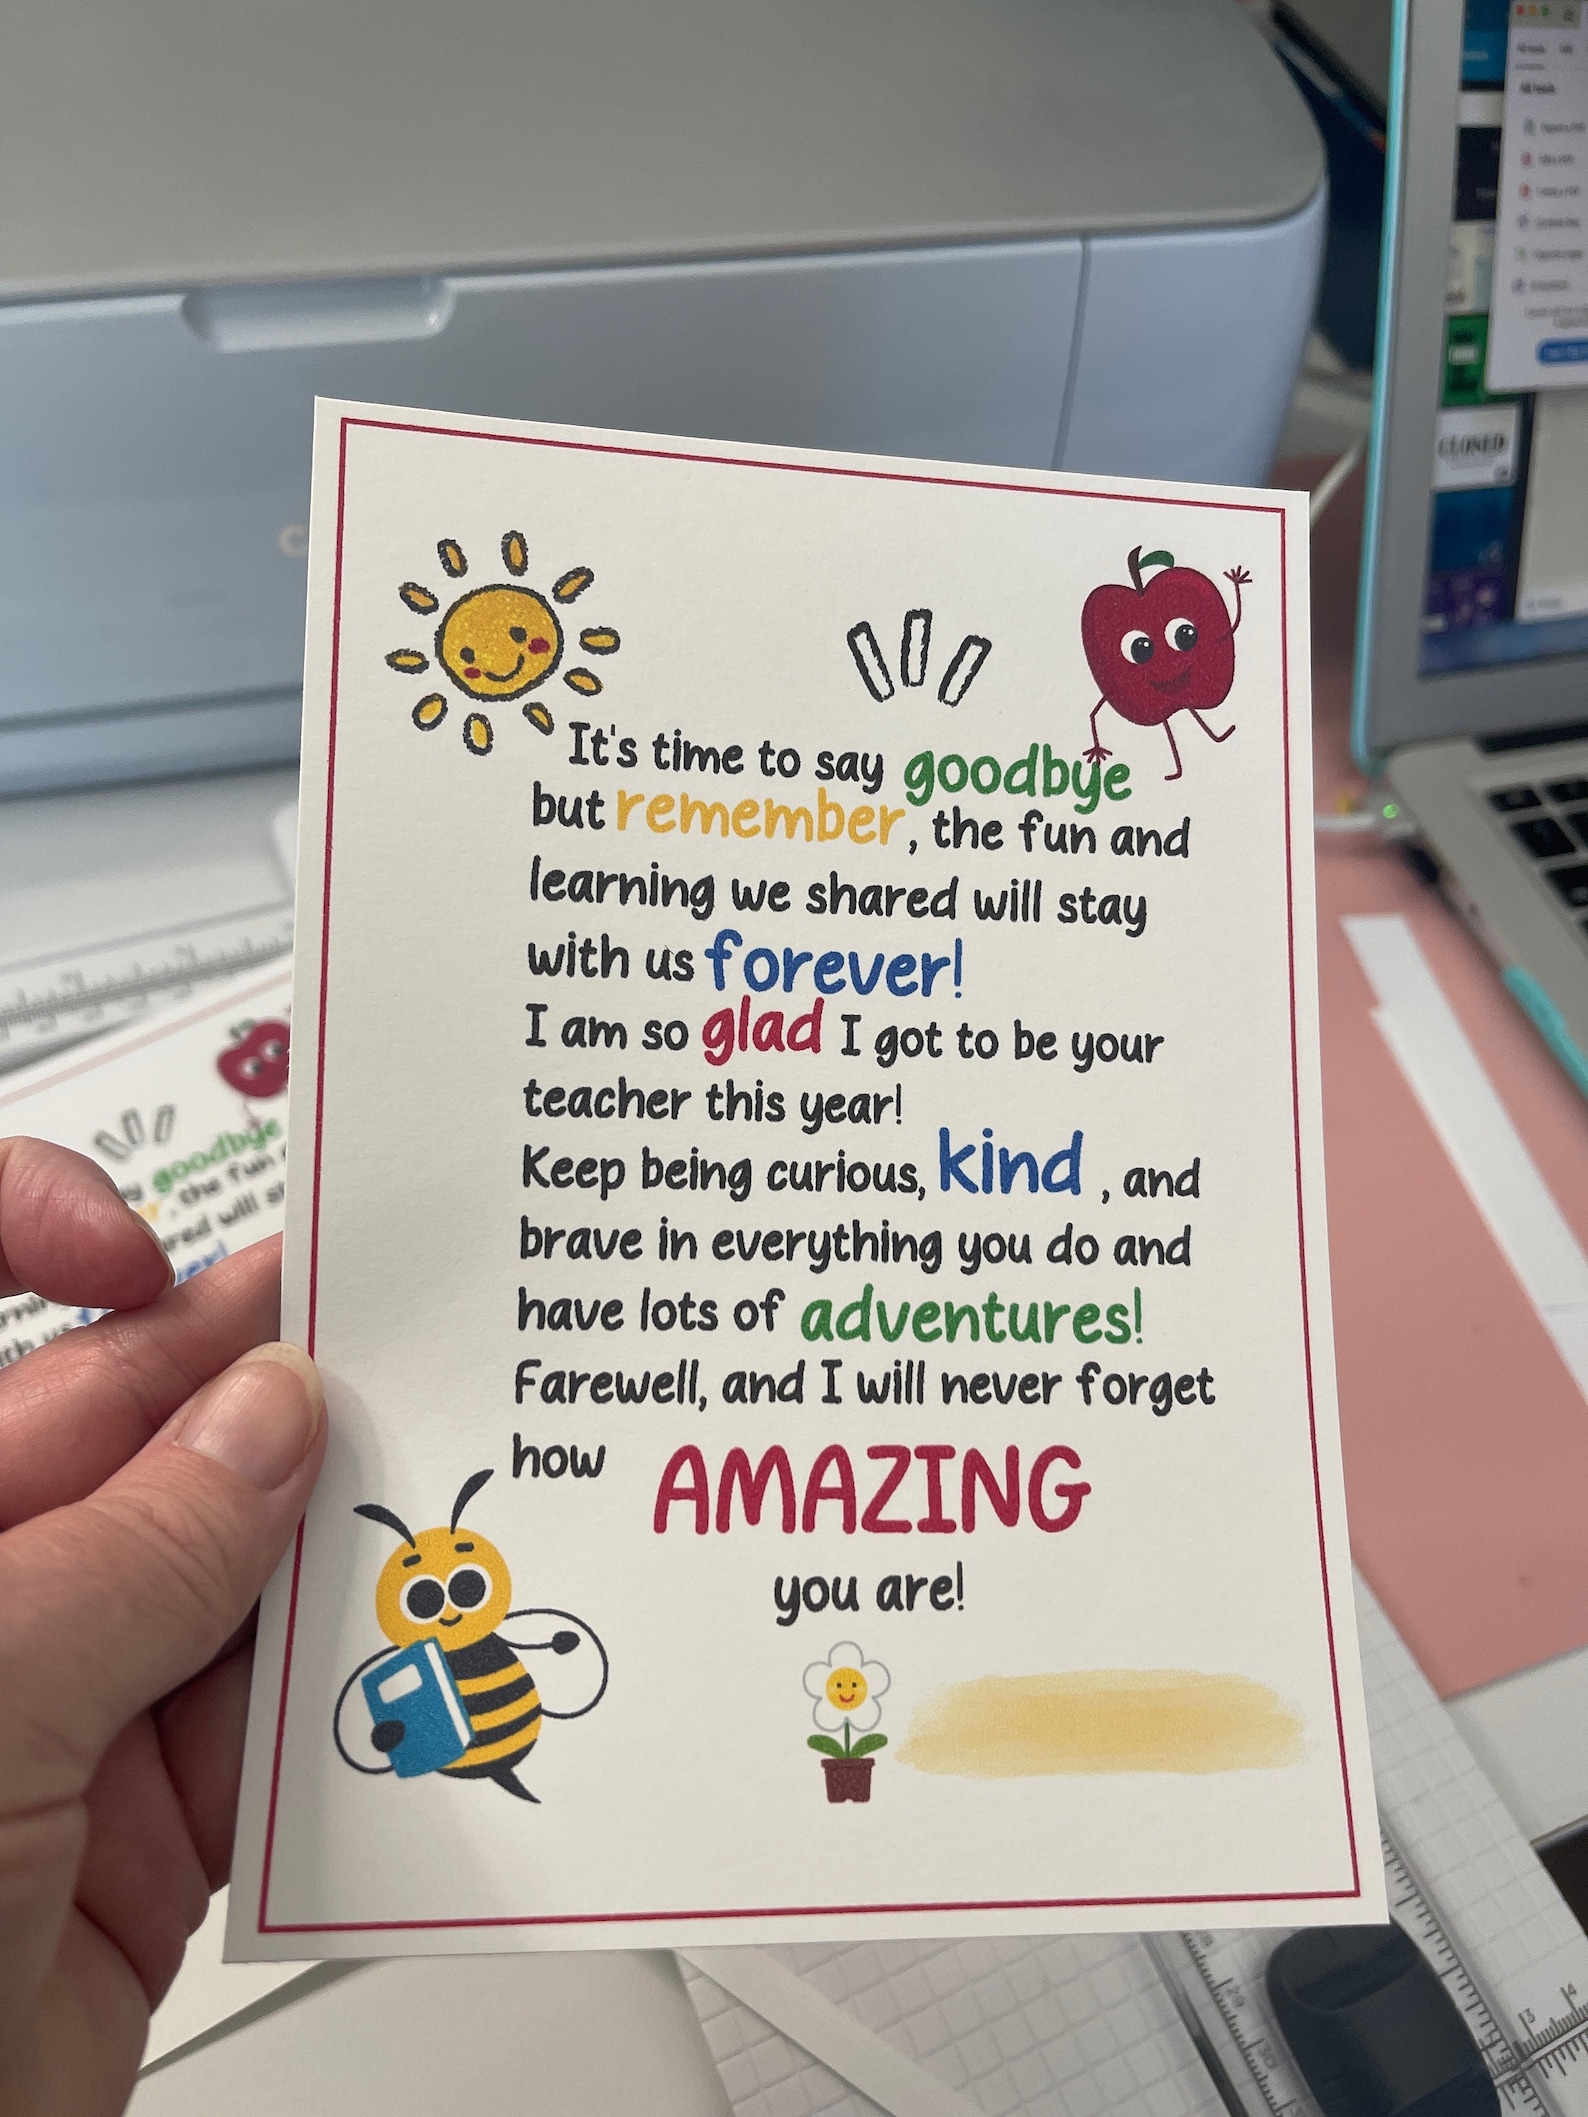 It's time to say goodbye
but remember, the fun and
learning we shared will stay
with us forever!
I am so glad I got to be your
teacher this year!
Keep being curious, kind , and
brave in everything you do and
have lots of adventures!
Farewell, and I will never forget
how AMAZING
you are!
goodbye
, the fun
red will
CLOSED
29
30
3
4